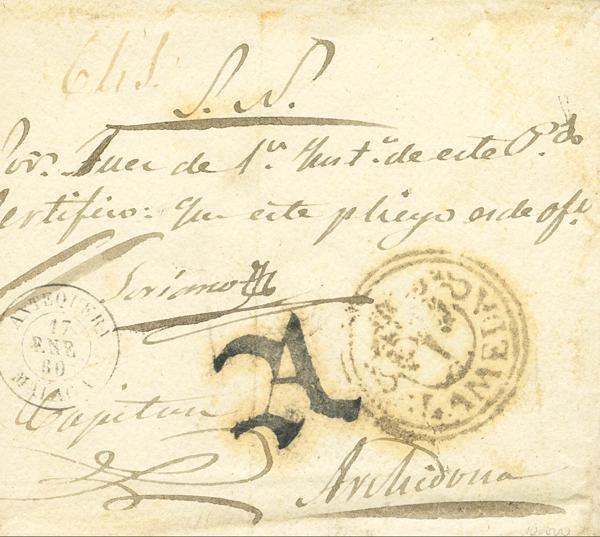 S. N.
Sor. Juez de 1ª. Inst.ª de este P.do
Certifico: Que este pliego es de of.º
Soriano
ANTEQUERA
17
ENE
60
MALAGA
A
Capitan
Archidona